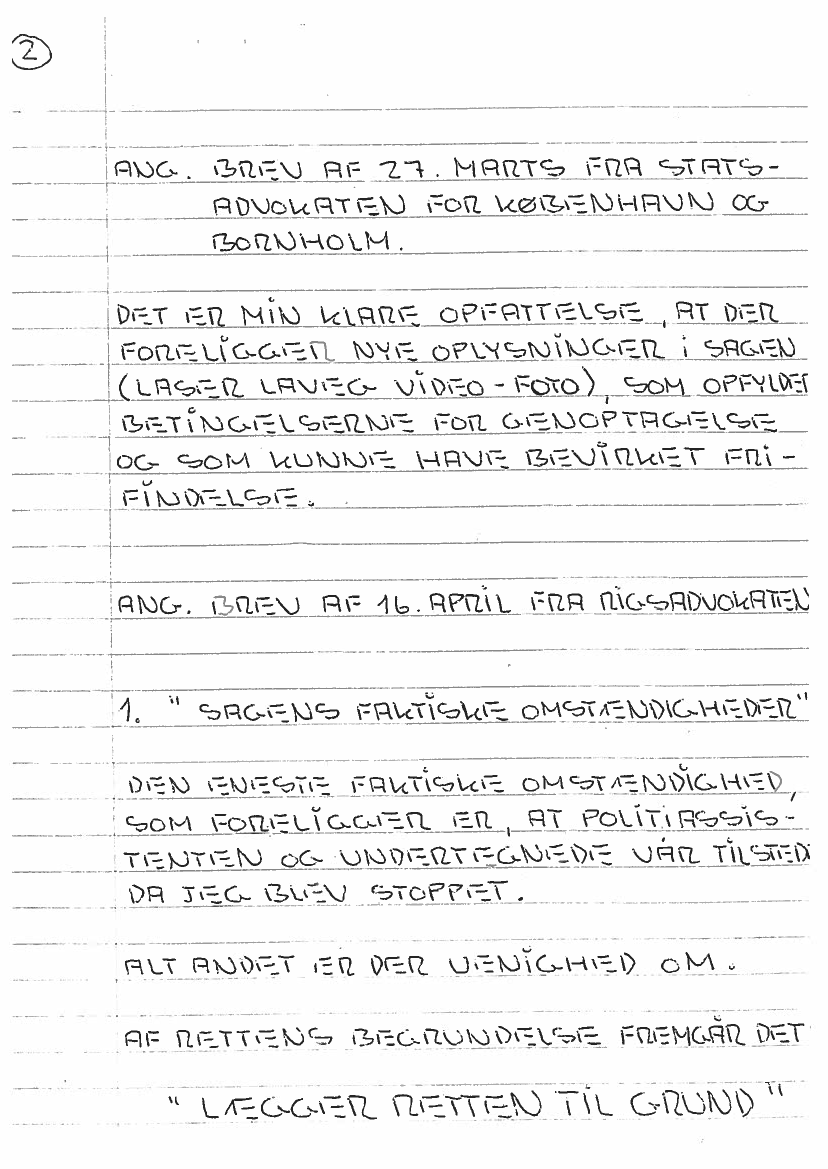 2
ANG. BREV AF 27. MARTS FRA STATS-
ADVOKATEN FOR KØBENHAVN OG
BORNHOLM.
DET ER MIN KLARE OPFATTELSE, AT DER
FORELIGGER NYE OPLYSNINGER I SAGEN
(LASER LAVEG VIDEO-FOTO), SOM OPFYLDER
BETINGELSERNE FOR GENOPTAGELSE
OG SOM KUNNE HAVE BEVIRKET FRI-
FINDELSE.
ANG. BREV AF 16. APRIL FRA RIGSADVOKATEN
1. "SAGENS FAKTISKE OMSTÆNDIGHEDER"
DEN ENESTE FAKTISKE OMSTÆNDIGHED,
SOM FORELIGGER ER, AT POLITIASSIS-
TENTEN OG UNDERTEGNEDE VAR TILSTED
DA JEG BLEV STOPPET.
ALT ANDET ER DER UENIGHED OM.
AF RETTENS BEGRUNDELSE FREMGÅR DET
"LÆGGER RETTEN TIL GRUND"